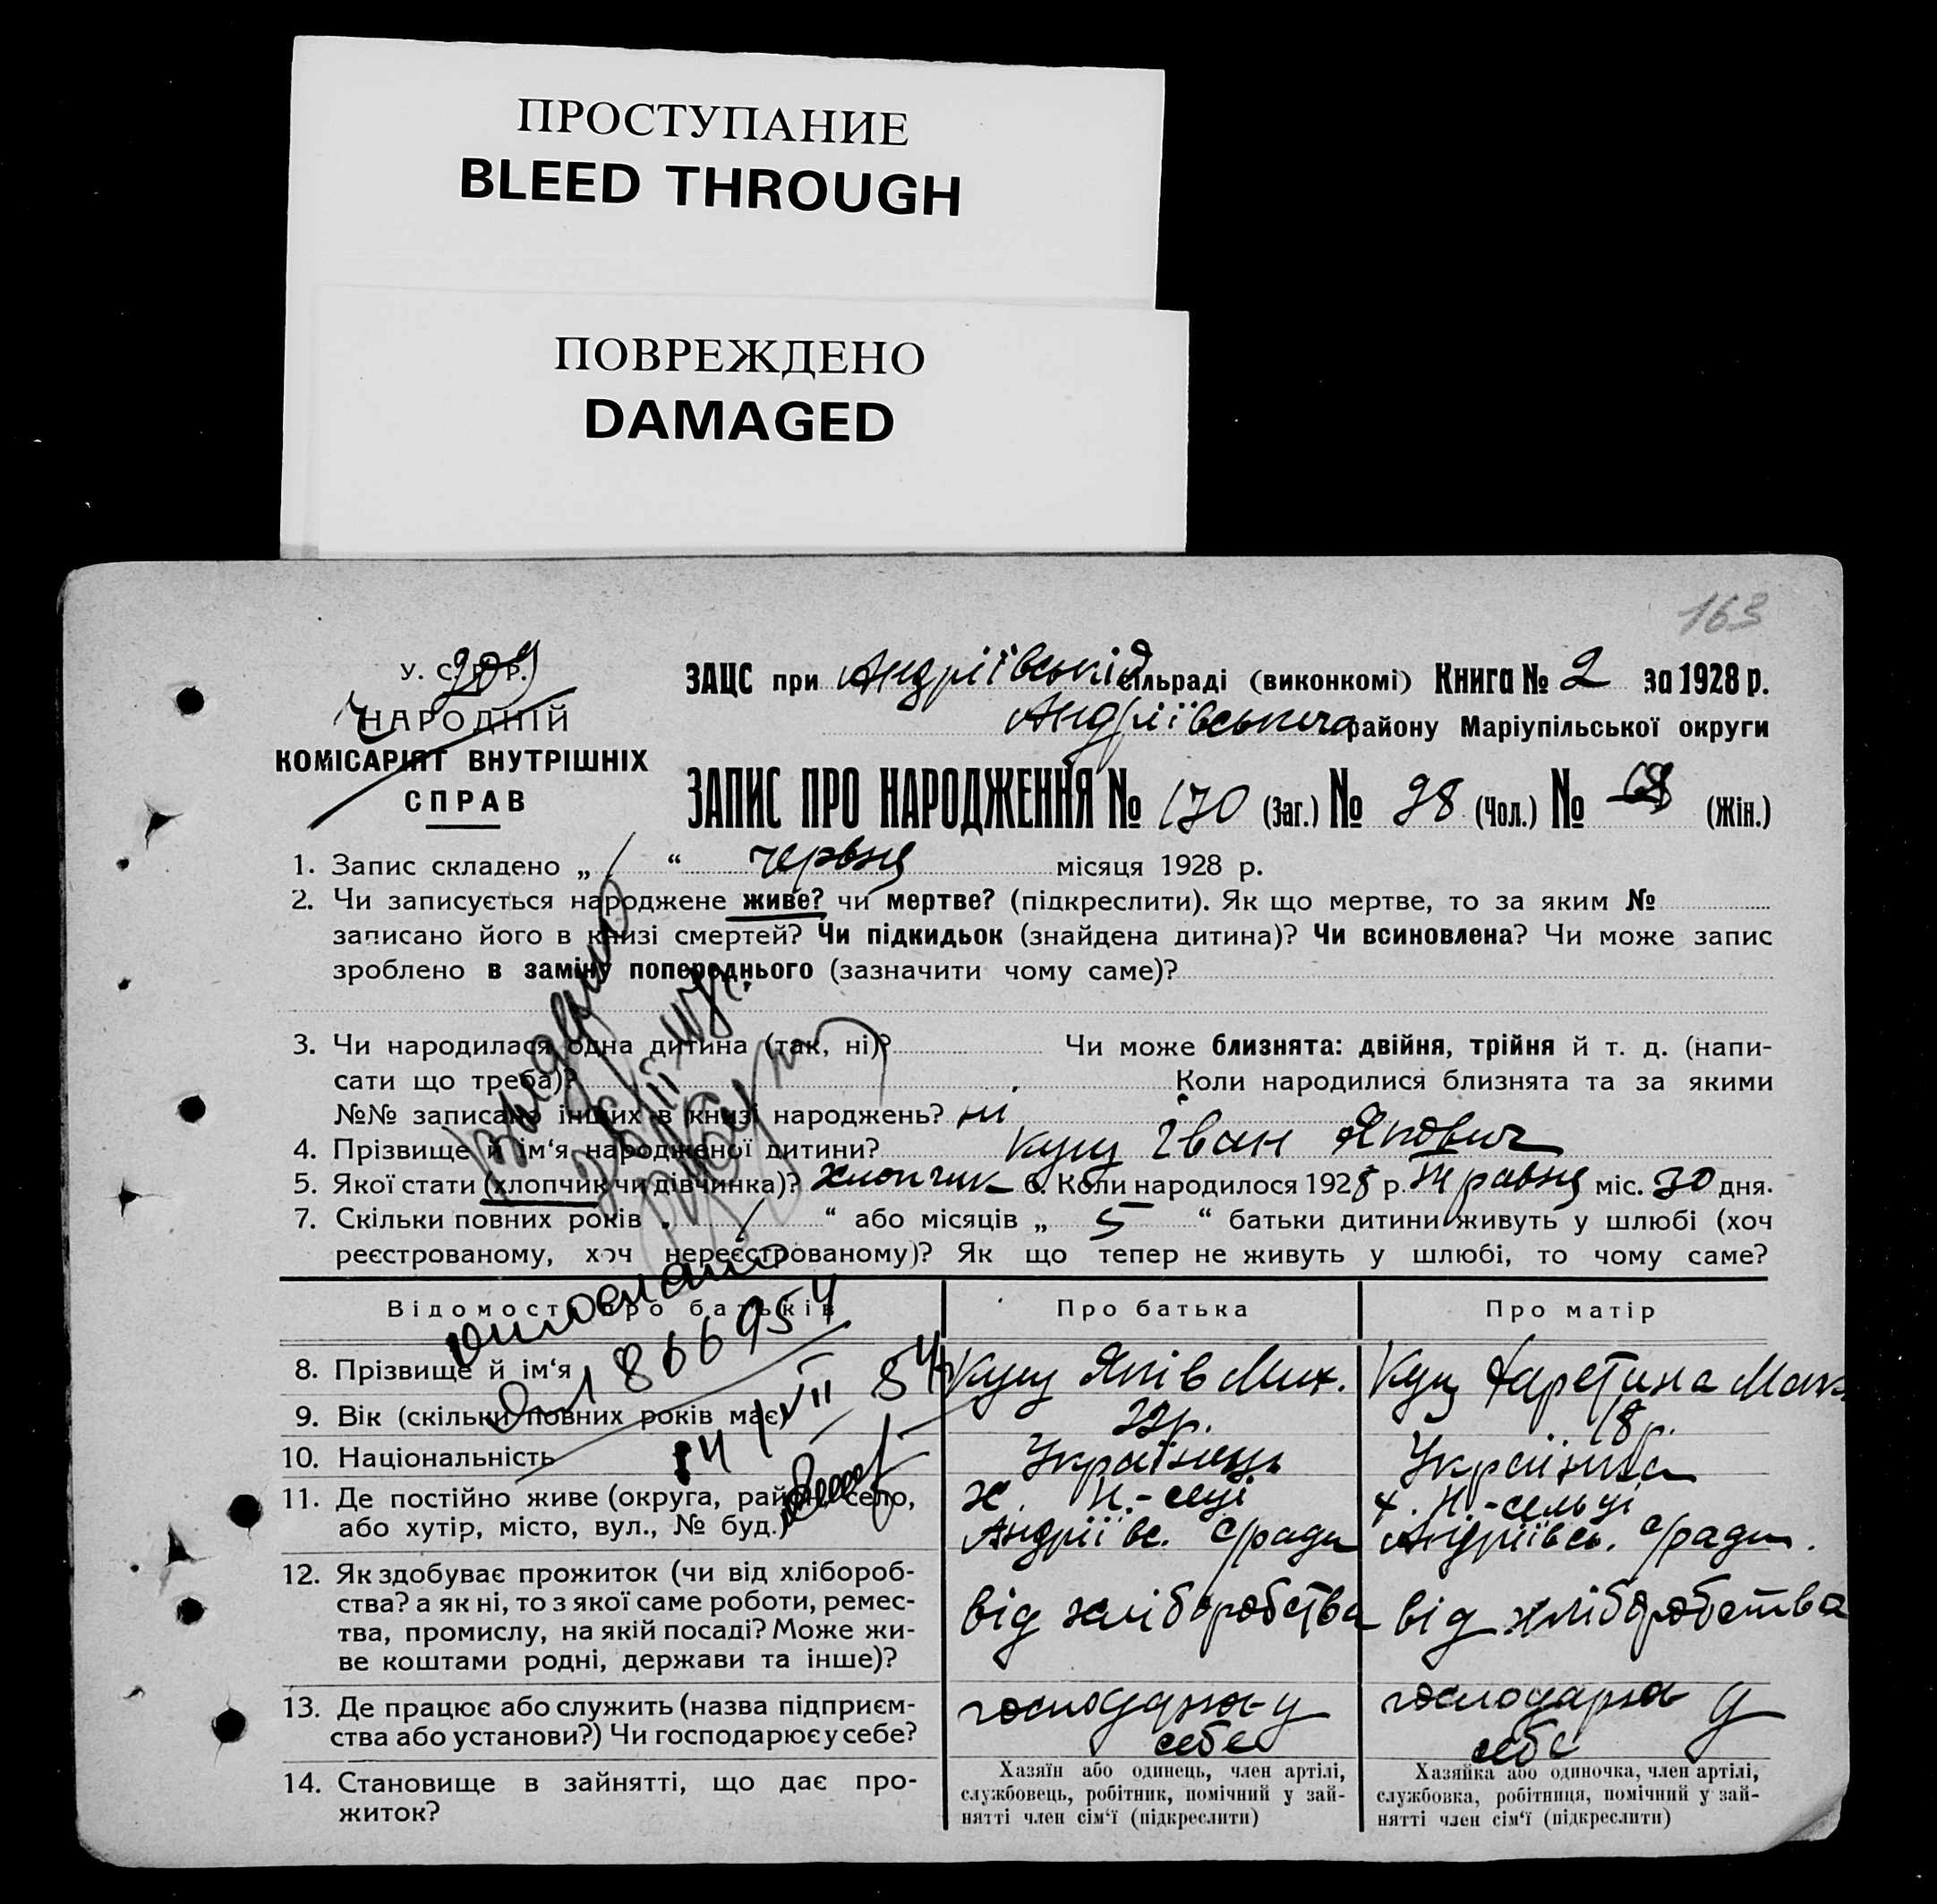 ПРОСТУПАНИЕ
BLEED THROUGH
ПОВРЕЖДЕНО
DAMAGED
163
У. С. Р. Р.
209
НАРОДНІЙ
КОМІСАРІЯТ ВНУТРІШНІХ
СПРАВ
ЗАЦС при Андріївській сільраді (виконкомі) Книга № 2 за 1928 р.
Андріївського району Маріупільської округи
ЗАПИС ПРО НАРОДЖЕННЯ № 170 (Заг.) № 98 (Чол.) № (Жін.)
1. Запис складено „ 1 “ червня місяця 1928 р.
2. Чи записується народжене живе? чи мертве? (підкреслити). Як що мертве, то за яким №
записано його в книзі смертей? Чи підкидьок (знайдена дитина)? Чи всиновлена? Чи може запис
зроблено в заміну попереднього (зазначити чому саме)?
3. Чи народилася одна дитина (так, ні)? Чи може близнята: двійня, трійня й т. д. (напи-
сати що треба)? Коли народилися близнята та за якими
№№ записано інших в книзі народжень? ні
4. Прізвище й ім‘я народженої дитини? Кущ Іван Якович
5. Якої стати (хлопчик чи дівчинка)? хлопчик 6. Коли народилося 1928 р. Травня міс. 30 дня.
7. Скільки повних років „ / “ або місяців „ 5 “ батьки дитини живуть у шлюбі (хоч
реєстрованому, хоч нереєстрованому)? Як що тепер не живуть у шлюбі, то чому саме?
Відомості про батьків Про батька Про матір
8. Прізвище й ім‘я Кущ Яків Мих. Кущ
9. Вік (скільки повних років має) 22р. 18р.
10. Національність Українець Українка
11. Де постійно живе (округа, район, село,
або хутір, місто, вул., № буд.) Андріївс. с/ради Андріївсь. с/ради.
12. Як здобуває прожиток (чи від хлібороб-
ства? а як ні, то з якої саме роботи, ремес-
тва, промислу, на якій посаді? Може жи-
ве коштами родні, держави та інше)?
від хліборобства від хліборобства
13. Де працює або служить (назва підприєм-
ства або установи?) Чи господарює у себе?
себе себе
14. Становище в зайнятті, що дає про-
житок?
Хазяїн або одинець, член артілі,
службовець, робітник, помічний у зай-
нятті член сім‘ї (підкреслити)
Хазяйка або одиночка, член артілі,
службовка, робітниця, помічний у зай-
нятті член сім‘ї (підкреслити)